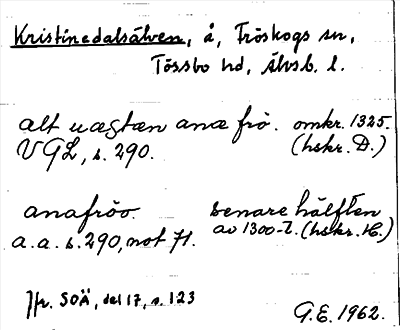 Kristinedalsälven, å, Fröskogs sn,
Tössbo hd, Älvsb. l.
alt uægtæn anæ frö. omkr. 1325.
VGL, s. 290. (hskr. D.)
anafröo. senare hälften
a.a. s. 290, not 71. av 1300-t. (hskr. H.)
Jfr. SOÄ, del 17, s. 123
G.E. 1962.